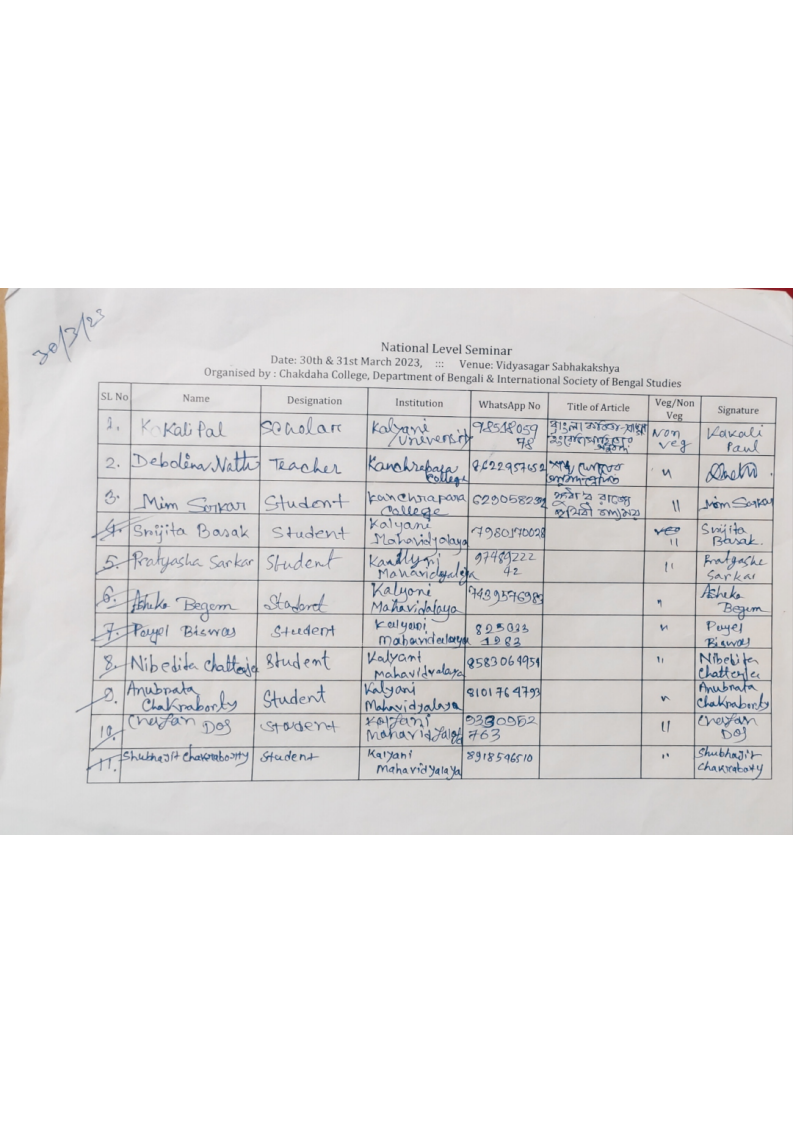 30/3/23
National Level Seminar
Date: 30th & 31st March 2023, ::: Venue: Vidyasagar Sabhakakshya
Organised by : Chakdaha College, Department of Bengali & International Society of Bengal Studies
SL No Name Designation Institution WhatsApp No Title of Article Veg/Non Veg Signature
1. Kakali Pal Scholar Kalyani University 9851805978 বাংলা Non veg Kakali Paul
2. Debolina Nath Teacher Kanchrapara College 8622957652 "
3. Mim Sorkar Student Kanchrapara College 629058232 " Mim Sarkar
4. Srijita Basak Student Kalyani Mahavidyalaya 7980170028 " Srijita Basak.
5. Pratyasha Sarkar Student Kalyani Mahavidyalaya 9748922242 " Pratyasha Sarkar
6. Asheka Begem Student Kalyani Mahavidalaya 7439576985 " Asheka Begem
7. Payel Biswas Student Kalyani Mahavidealaya 8250231983 " Payel Biswas
8. Nibedita Chatterjee Student Kalyani Mahavidyalaya 8583064954 " Nibedita Chatterjee
9. Anubrata Chakraborty Student Kalyani Mahavidyalaya 8101764793 " Anubrata Chakraborty
10. DOS Student Kalyani Mahavidyalaya 9330952763 " DOS
11. Shubhajit Chakraborty Student Kalyani Mahavidyalaya 8918596510 " Shubhajit Chakraborty